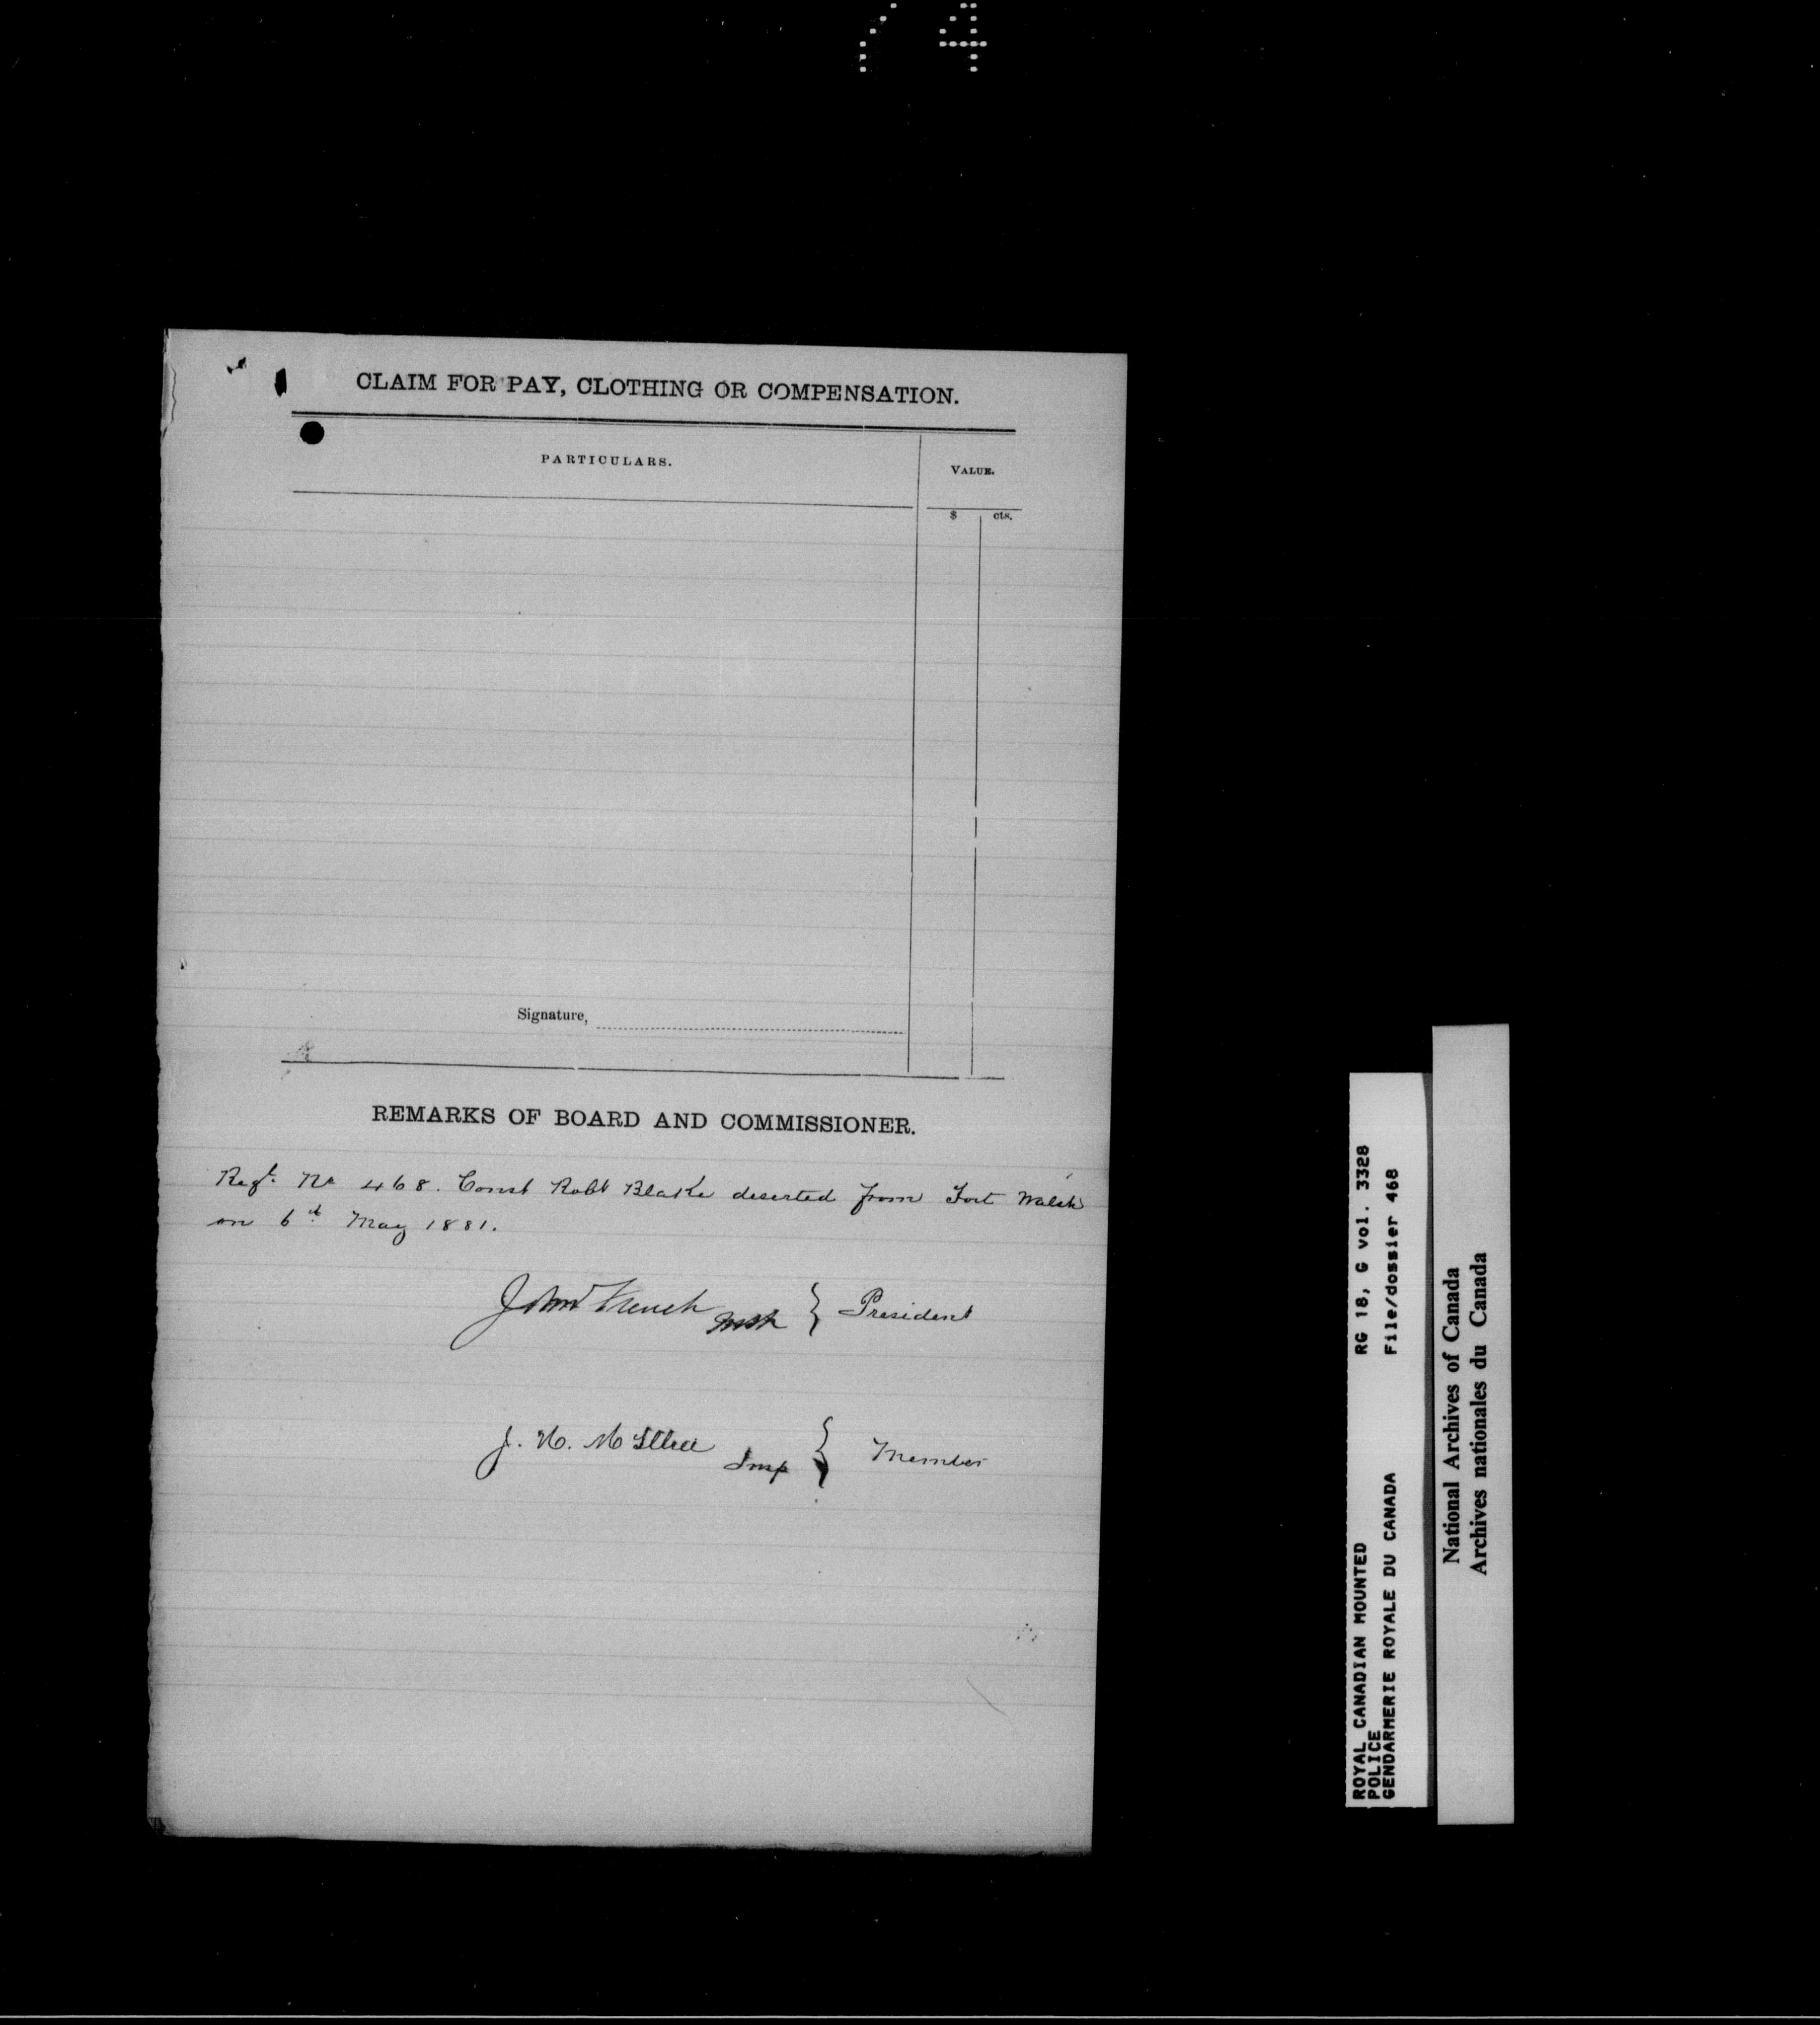 74
CLAIM FOR PAY, CLOTHING OR COMPENSATION.
PARTICULARS.
VALUE.
$ cts.
Signature,
REMARKS OF BOARD AND COMMISSIONER.
Regt. No 468. Const Robt Blake deserted from Fort Walsh
on 6th May 1881.
John French Insp } President
J. H. McIllree Insp } Member
ROYAL CANADIAN MOUNTED RG 18, G vol. 3328
POLICE
GENDARMERIE ROYALE DU CANADA File/dossier 468
National Archives of Canada
Archives nationales du Canada